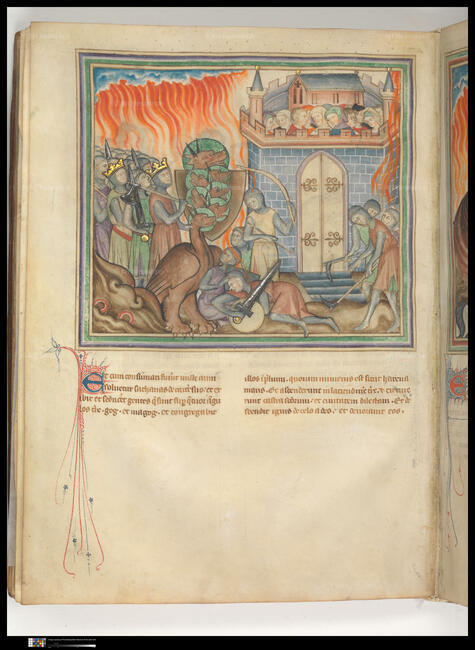 Et cum consumati fuerint mille anni
soluetur sathanas de carcere suo · et ex
ibit et seducet gentes q̄ sunt sup̄ q̄tuor āgu
los t̄re · gog · et magog · et congregabit
illos ī p̄lium · quorum numerus est sicut harena
maris · Et ascenderunt in latitudinē t̄re · et circuie
runt castra sc̄orum · et ciuitatem dilectam · Et de
scendit ignis de celo a deo · et deuorauit eos ·